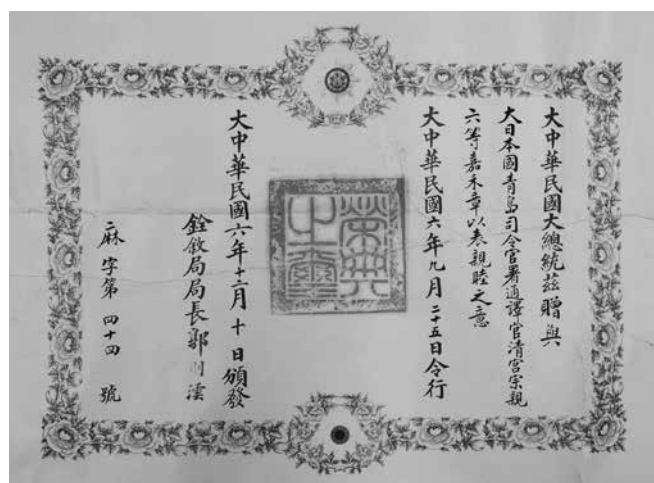 大中華民國大總統茲贈與
大日本國青島司令官署通譯官清宮宗親
六等嘉禾章以表親睦之意
大中華民國六年九月二十五日令行
榮典之璽
大中華民國六年十二月十日頒發
銓敘局局長郭則澐
麻字第四十四號